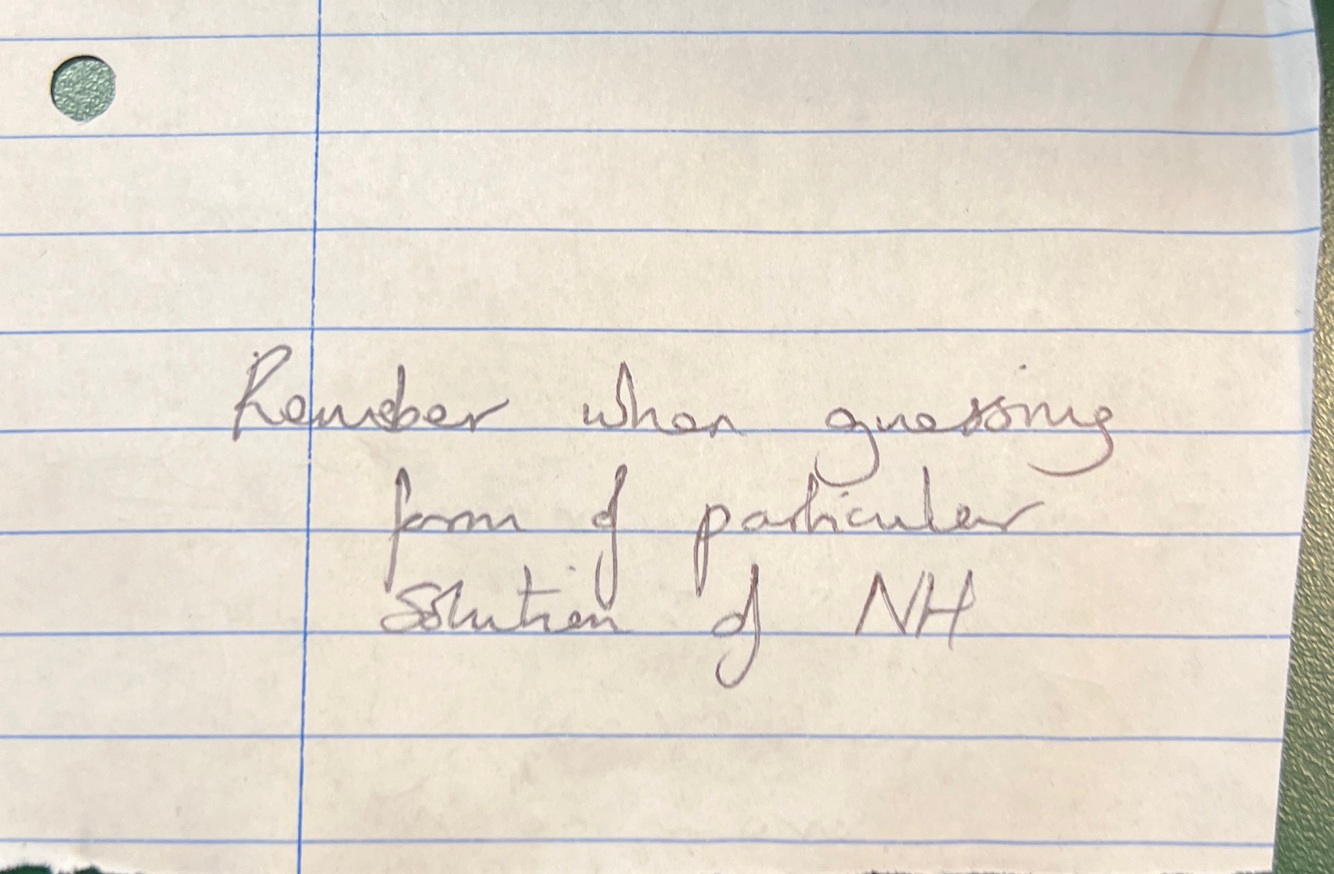 Remember when guessing
form of particular
solution of NH